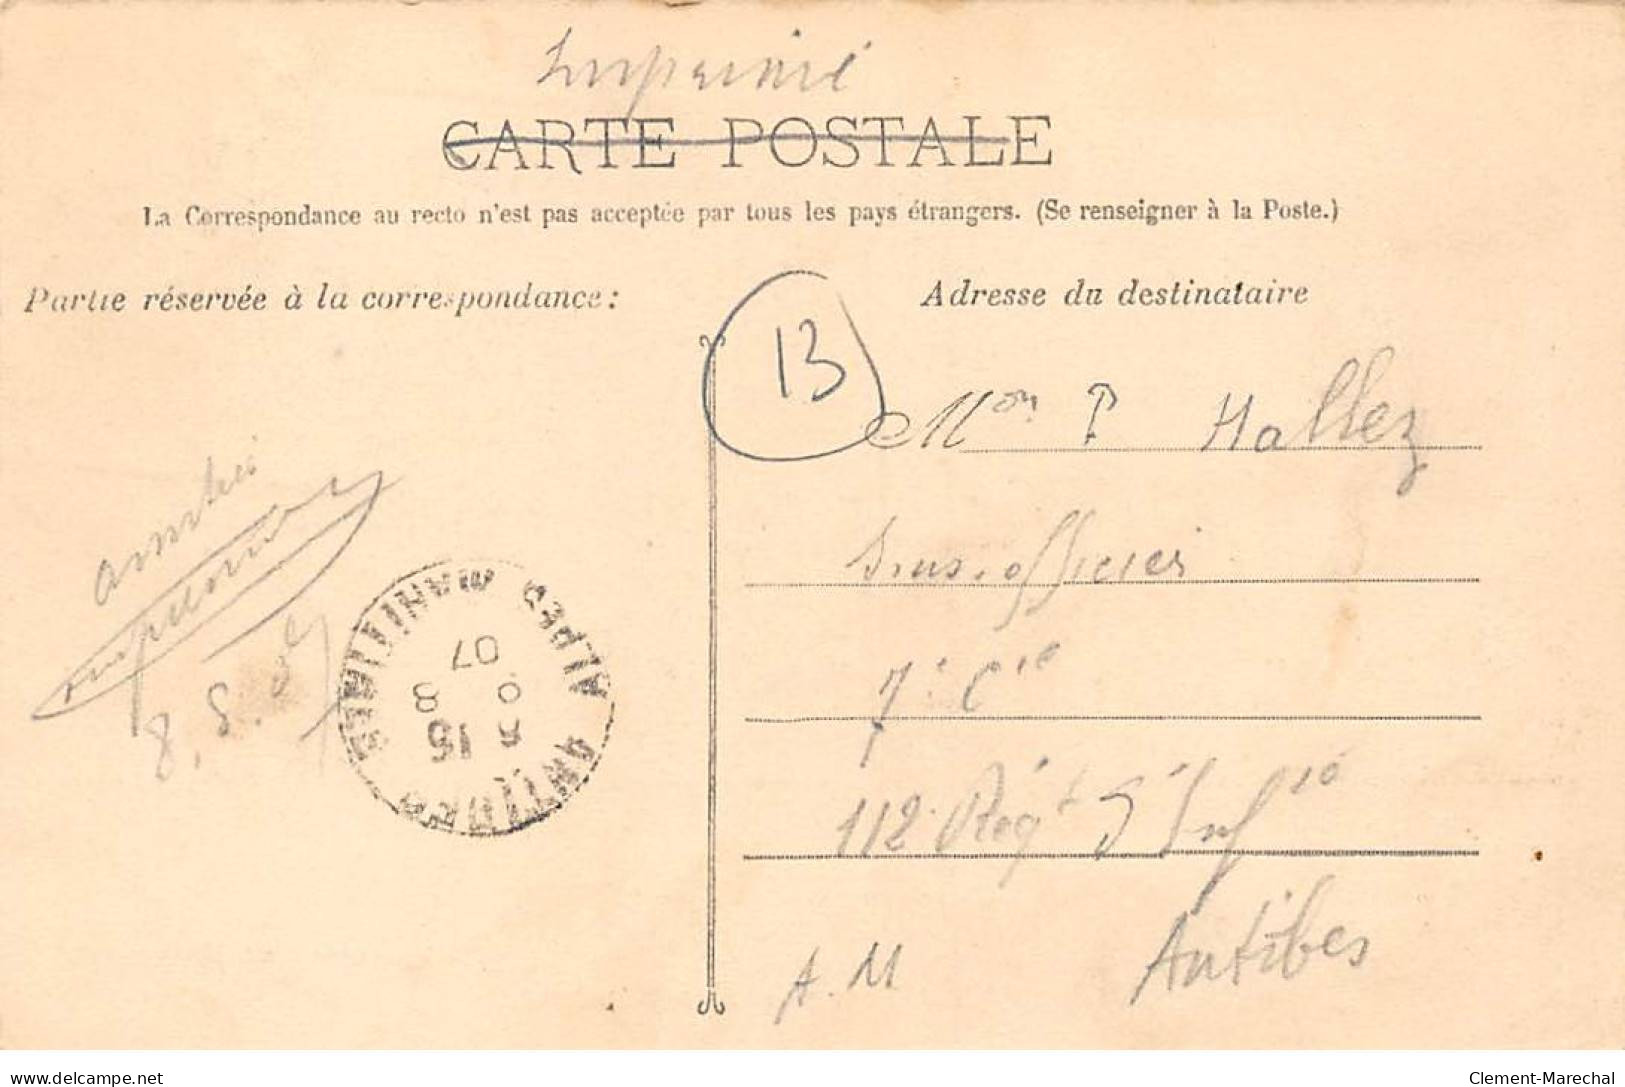 Imprimé
CARTE POSTALE
La Correspondance au recto n'est pas acceptée par tous les pays étrangers. (Se renseigner à la Poste.)
Partie réservée à la correspondance :
amitié
8.8.07
ANTIBES ALPES MARITIMES
15
8
07
13
Adresse du destinataire
Mon P Hallez
Sous-officier
7e Cie
112 Régt d'Infie
Antibes
A.M
delcampe.net
Clement-Marechal